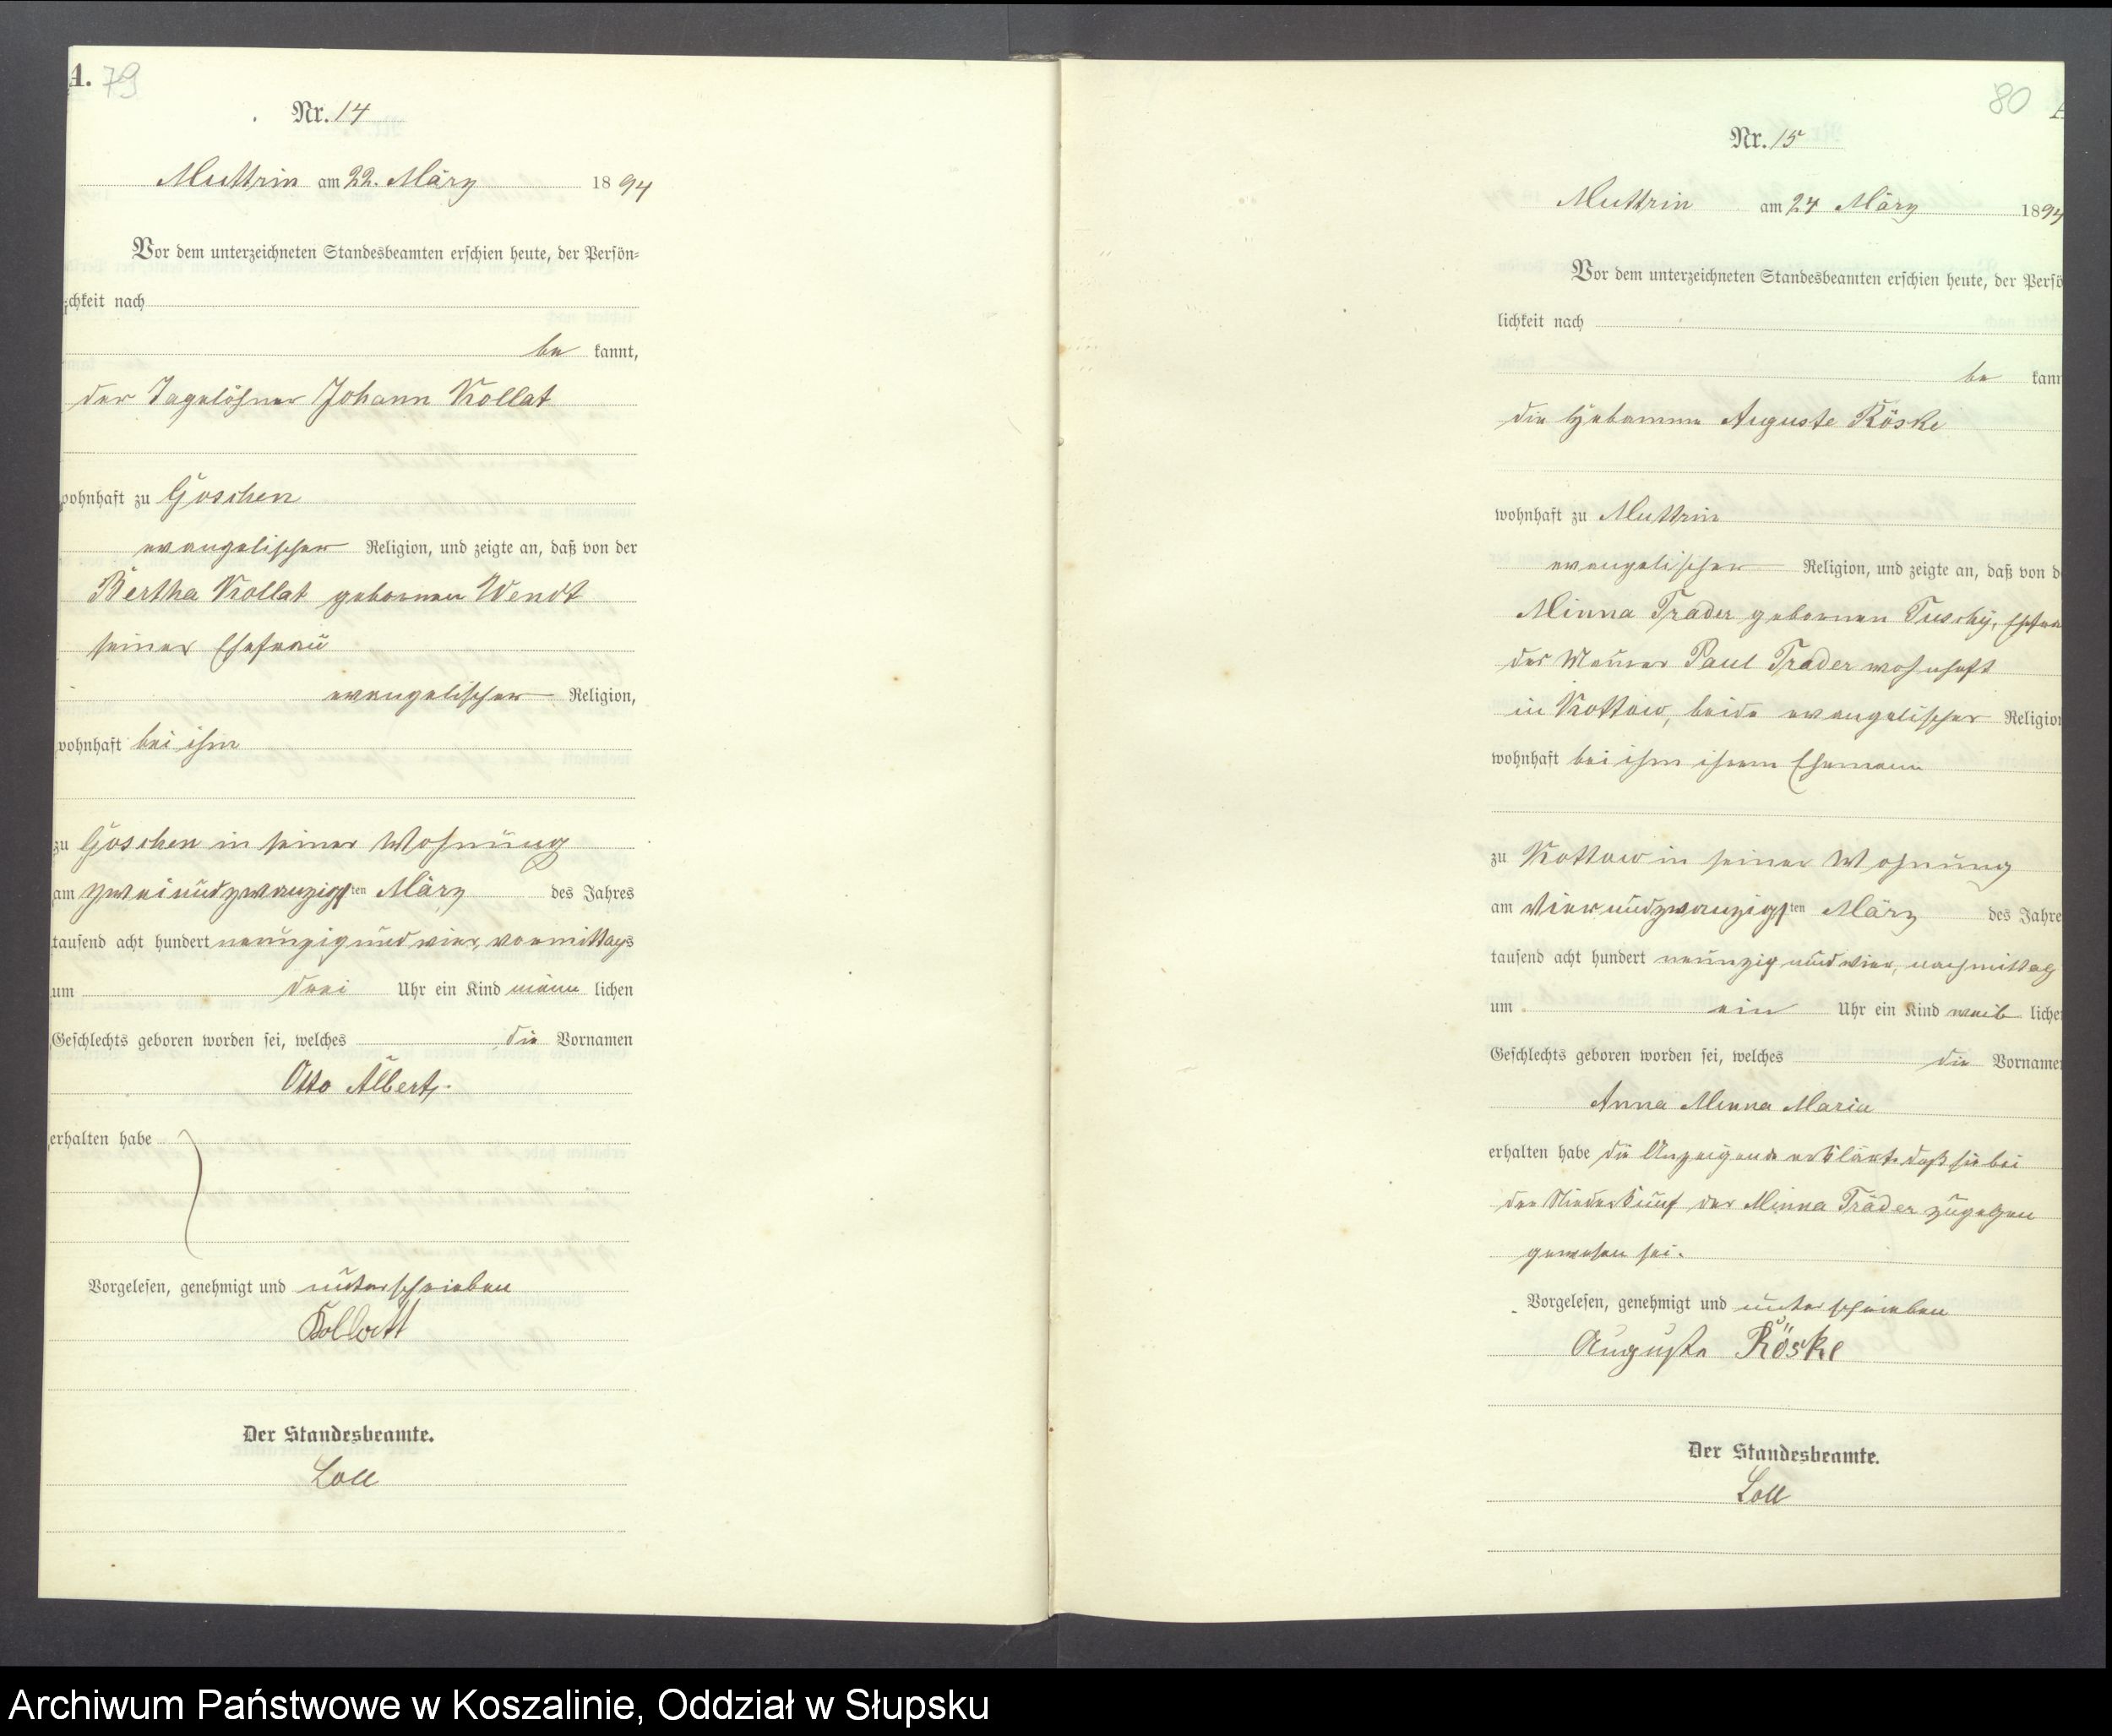 A. 79
Nr. 14
Muttrin am 22. März 1894
Vor dem unterzeichneten Standesbeamten erschien heute, der Persön-
lichkeit nach
be kannt,
der Tagelöhner Johann Kollat
wohnhaft zu Goschen
evangelischer Religion, und zeigte an, daß von der
Bertha Kollat gebornen Wendt
seiner Ehefrau
evangelischer Religion,
wohnhaft bei ihm
zu Goschen in seiner Wohnung
am zweiundzwanzigsten März des Jahres
tausend acht hundert neunzig und vier, vormittags
um drei Uhr ein Kind männ lichen
Geschlechts geboren worden sei, welches die Vornamen
Otto Albert,
erhalten habe
Vorgelesen, genehmigt und unterschrieben
Kollatt
Der Standesbeamte.
Loll
80 A
Nr. 15
Muttrin am 24 März 1894
Vor dem unterzeichneten Standesbeamten erschien heute, der Persö
lichkeit nach
be kann
die Hebamme Auguste Röske
wohnhaft zu Muttrin
evangelischer Religion, und zeigte an, daß von d
Minna Trader gebornen Tuschy, Ehefra
des Maurer Paul Trader wohnhaft
in Kottow, beide evangelischer Religion
wohnhaft bei ihm ihrem Ehemann
zu Kottow in seiner Wohnung
am vierundzwanzigsten März des Jahre
tausend acht hundert neunzig und vier, nachmittag
um ein Uhr ein Kind weib liche
Geschlechts geboren worden sei, welches die Vorname
Anna Minna Maria
erhalten habe die Anzeigende erklärt daß sie bei
der Niederkunft der Minna Träder zugegen
gewesen sei.
Vorgelesen, genehmigt und unterschrieben
Auguste Röske
Der Standesbeamte.
Loll
Archiwum Państwowe w Koszalinie, Oddział w Słupsku